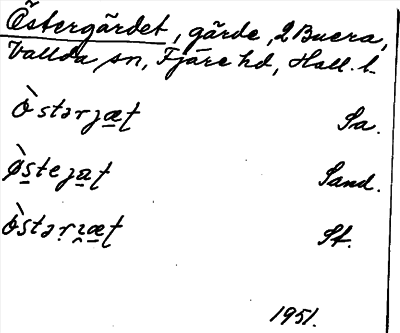 Östergärdet, gärde, 2 Buera,
Vallda sn, Fjäre hd, Hall. l.
ò̷stərjæ̠t Sa.
ø̀s̠teja̠t Sand.
ò̷stərɪ̯æ̠t St.
1951.